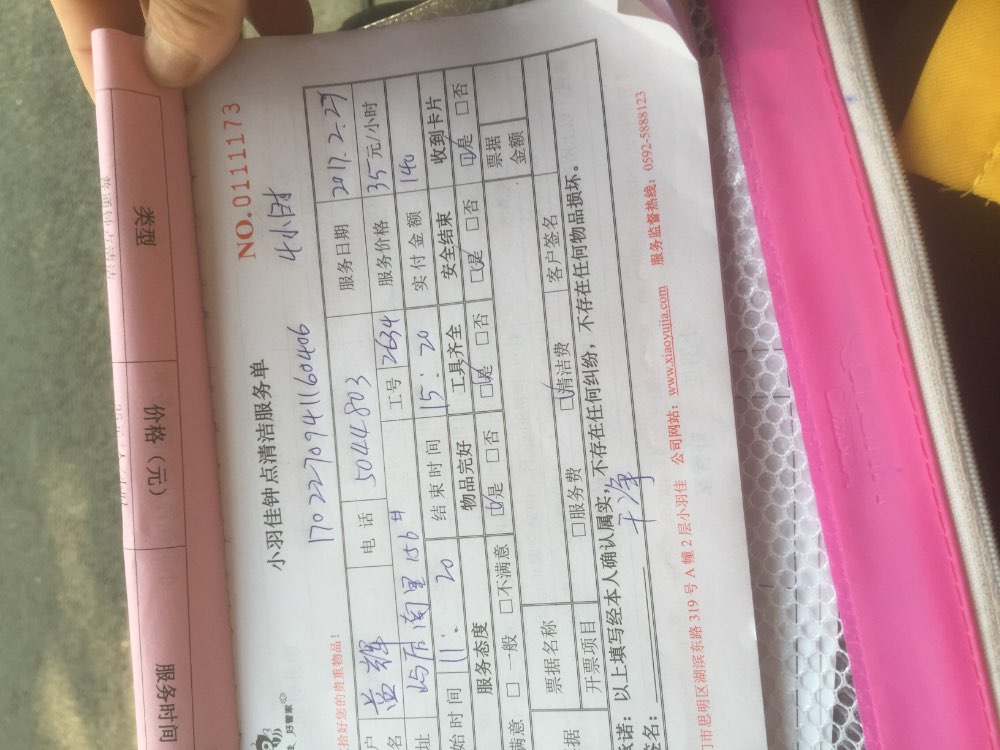 类型
价格（元）
服务时间
NO.0111173
好管家
小羽佳钟点清洁服务单
4小时
1702270941160406
拾好您的贵重物品！
户名 黄辉 电话 5044803 服务日期 2017.2.27
址 工号 2634 服务价格 35元/小时
始时间 11:20 结束时间 15:20 实付金额 140
服务态度 物品完好 工具齐全 安全结束 收到卡片
满意 □一般 □不满意 □是 □否 □是 □否 □是 □否 □是 □否
据 票据名称 □服务费 □清洁费 客户签名 票据金额
开票项目
承诺：以上填写经本人确认属实，不存在任何纠纷，不存在任何物品损坏。
签名： 干净
门市思明区湖滨东路 319 号 A 幢 2 层小羽佳 公司网站：www.xiaoyujia.com 服务监督热线：0592-5888123